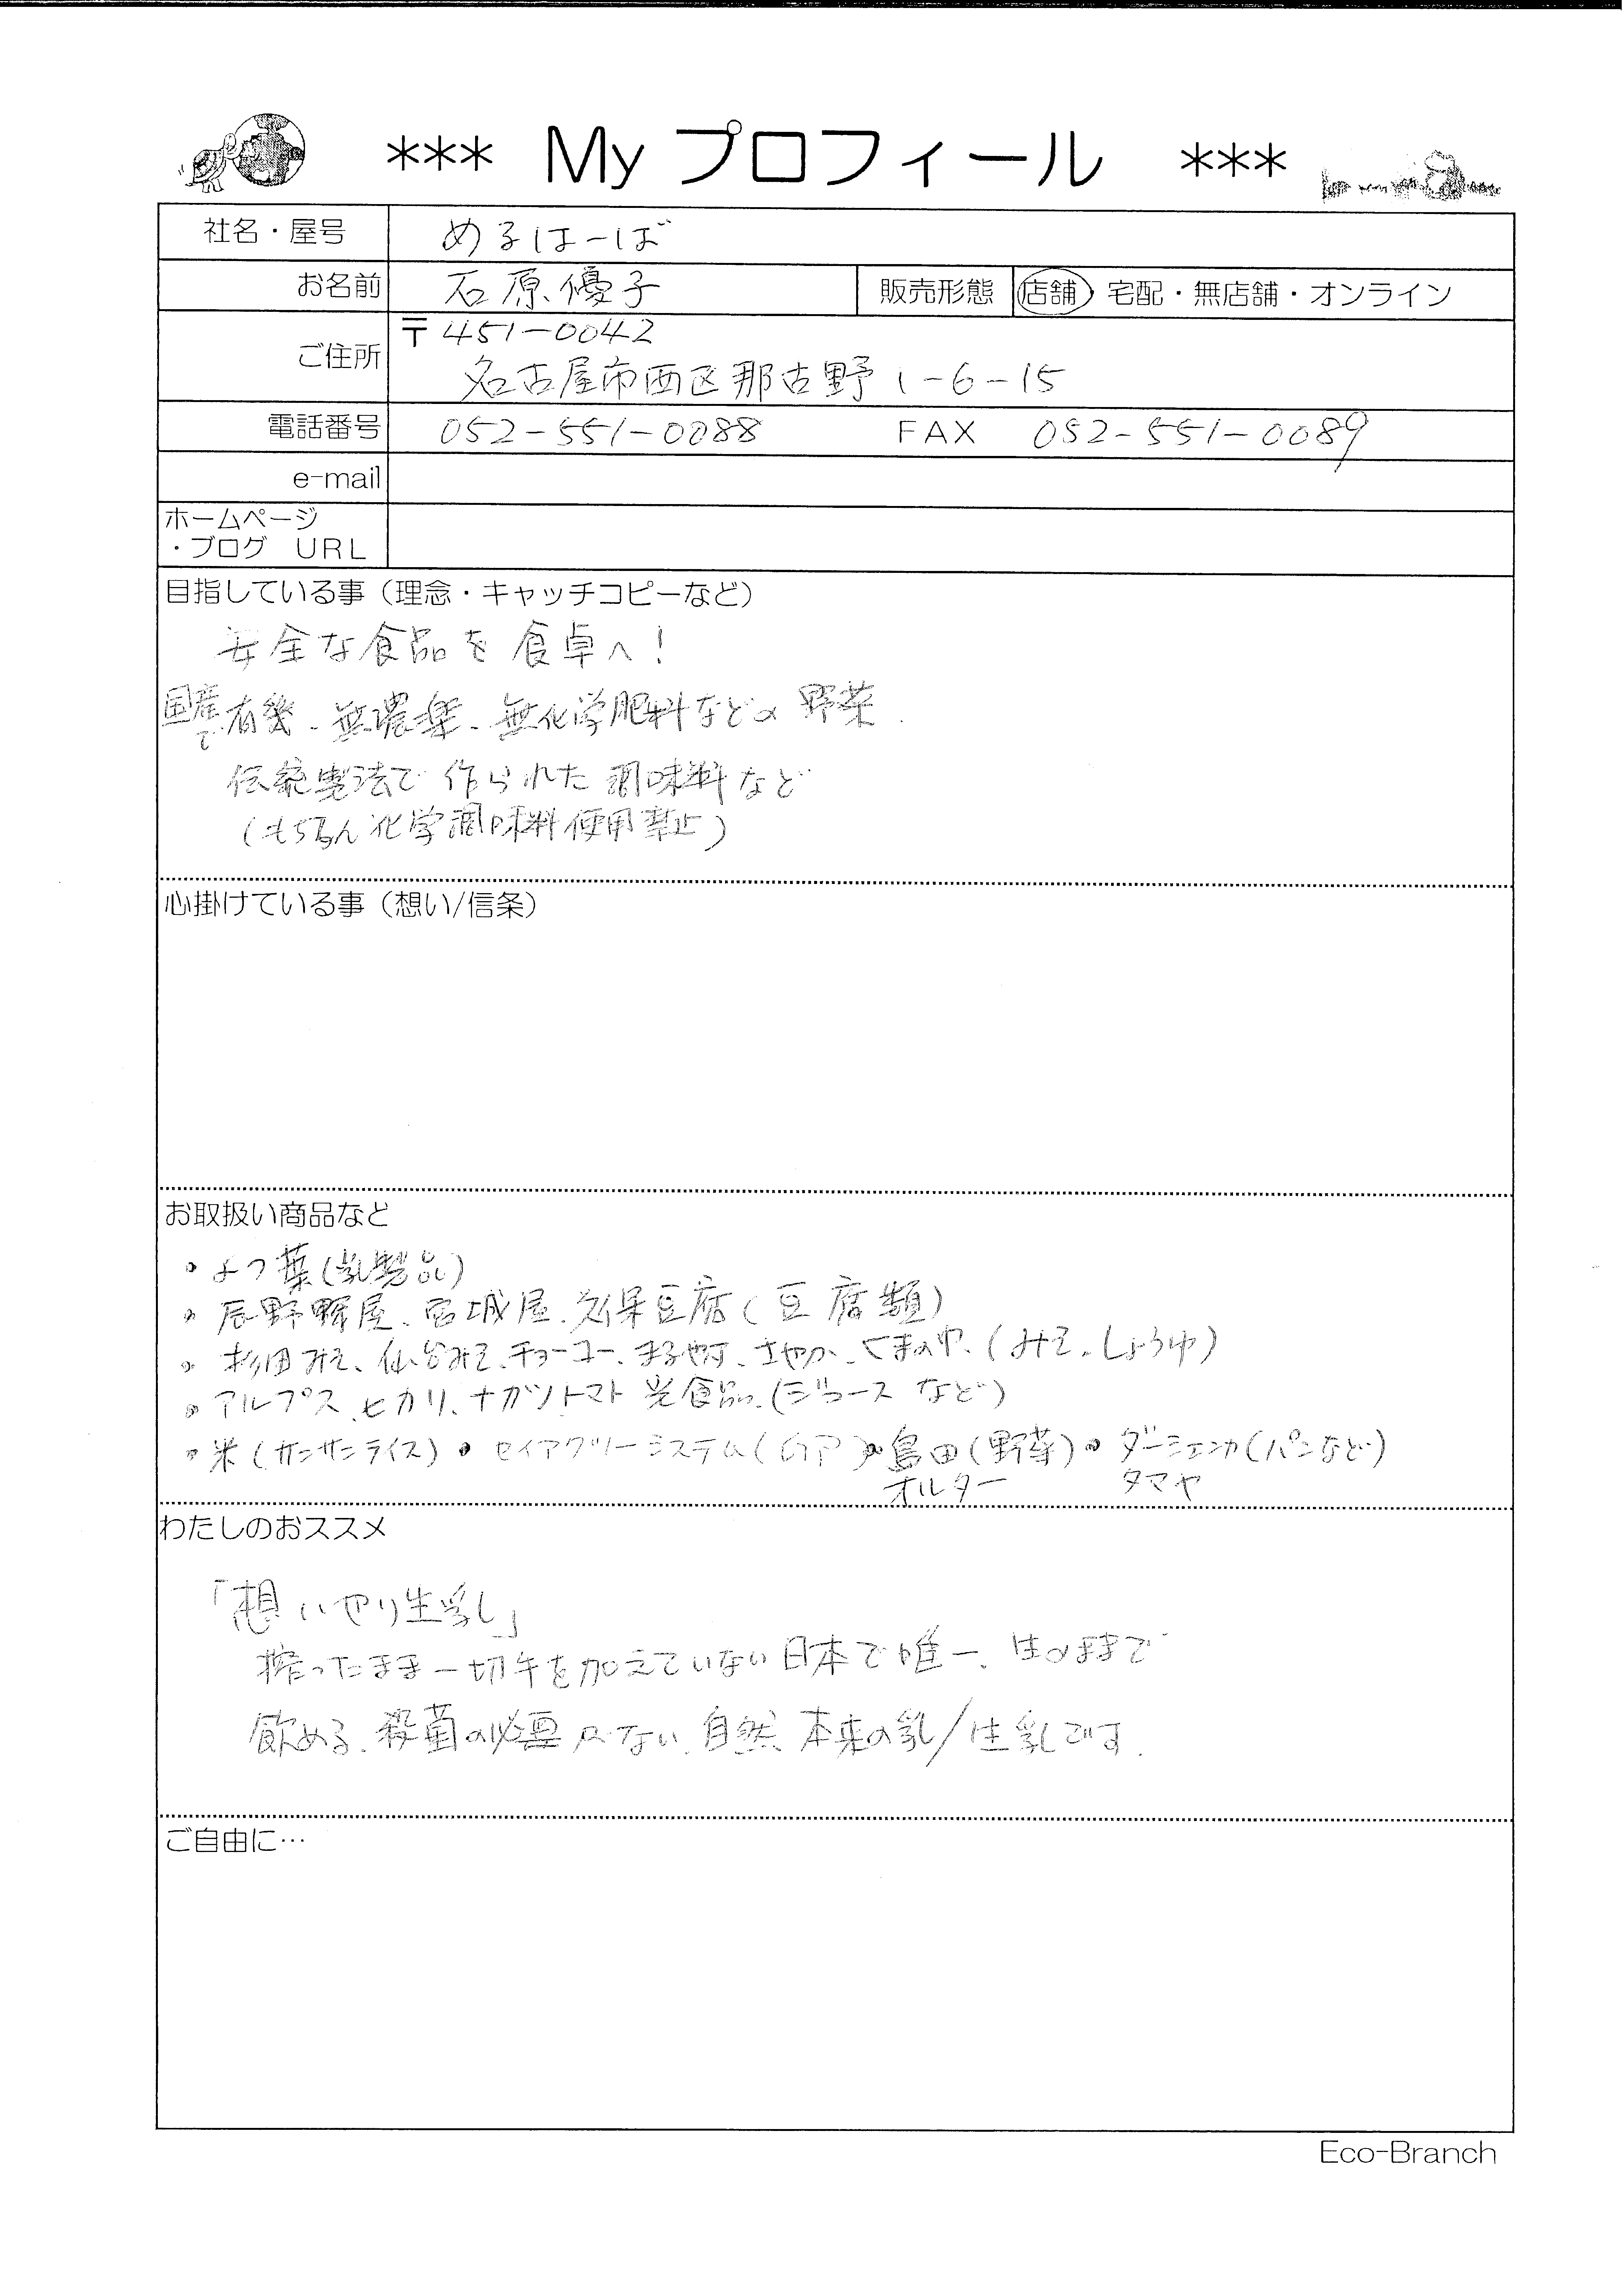 *** My プロフィール ***
社名・屋号 めるはーば
お名前 石原優子 販売形態 店舗・宅配・無店舗・オンライン
ご住所 〒451-0042
名古屋市西区那古野1-6-15
電話番号 052-551-0088 FAX 052-551-0089
e-mail
ホームページ
・ブログ URL
目指している事（理念・キャッチコピーなど）
安全な食品を食卓へ！
国産で有機、無農薬、無化学肥料などの野菜
伝統製法で作られた調味料など
(もちろん化学調味料使用禁止)
心掛けている事（想い/信条）
お取扱い商品など
・よつ葉(乳製品)
・辰野 屋、宮城屋、久保豆腐(豆腐類)
・杉田みそ、仙台みそ、チョーコー、まるやす、さやか、くまの中、(みそ、しょうゆ)
・アルプス、ヒカリ、ナガノトマト 光食品、(ジュースなど)
・米(サンサンライス)・セイアグリーシステム( )・島田(野菜)・ダーシェンカ(パンなど)
オルター タマヤ
わたしのおススメ
「想いやり生乳」
搾ったまま一切手を加えていない日本で唯一、 ままで
飲める、殺菌の必要 ない、自然、本来の乳/生乳です。
ご自由に…
Eco-Branch